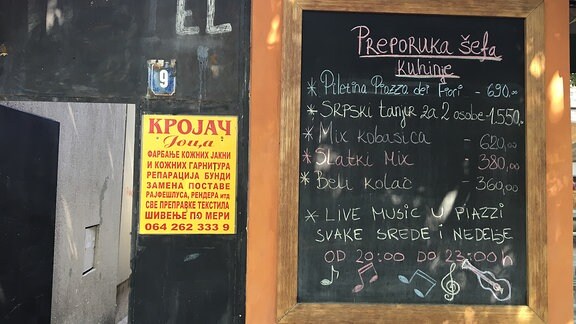 EL
9
КРОЈАЧ
Гоца
ФАРБАЊЕ КОЖНИХ ЈАКНИ
И КОЖНИХ ГАРНИТУРА
РЕПАРАЦИЈА БУНДИ
ЗАМЕНА ПОСТАВЕ
РАЈФЕШЛУСА, РЕНДЕРА итд
СВЕ ПРЕПРАВКЕ ТЕКСТИЛА
ШИВЕЊЕ ПО МЕРИ
064 262 333 9
PREPORUKA šefa
kuhinje
* Piletina Piazza dei Fiori - 690.-
* SRPSKI tanjir za 2 osobe - 1.550.-
* Mix kobasica - 620,00
* Slatki Mix - 380,00
* Beli kolač - 360,00
* LIVE MUSIC U PIAZZI
SVAKE SREDE i NEDELJE
OD 20:00 DO 23:00 h